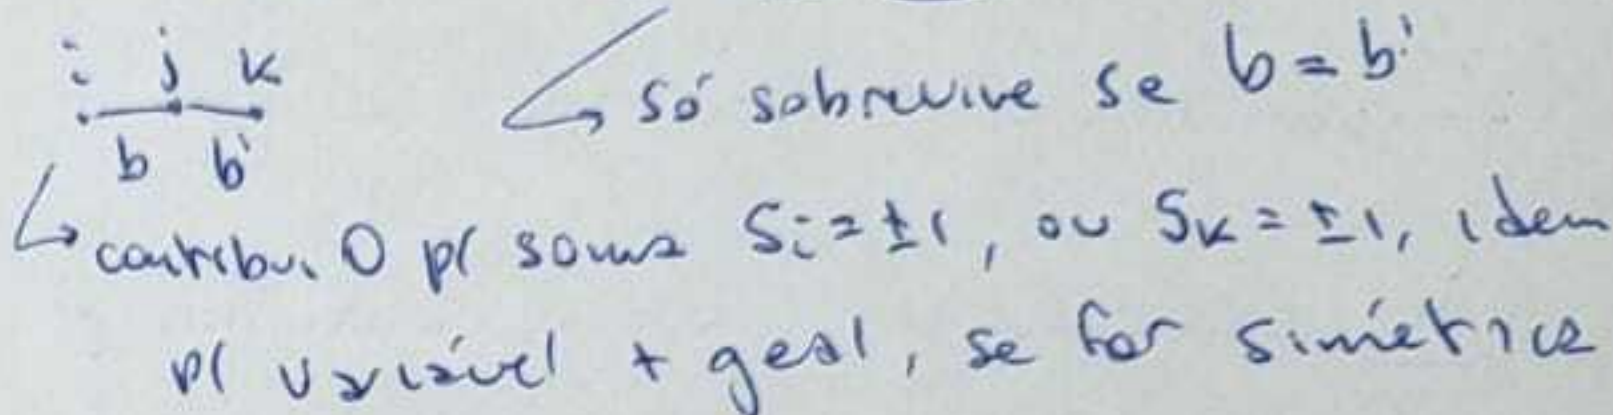 i j k
↳ só sobrevive se b = b'
b b'
↳ contribui 0 p/ soma Si = ±1, ou Sk = ±1, idem
p/ variável + geral, se for simétrica